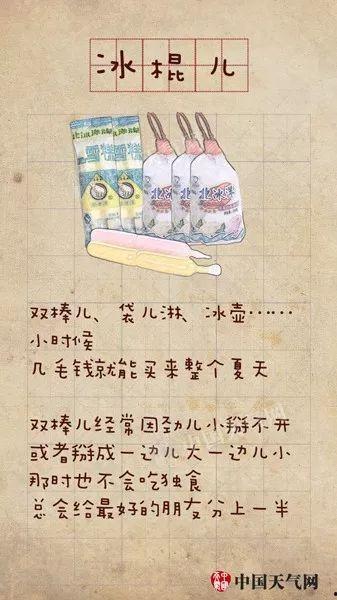 冰棍儿
北冰洋
北冰洋
双棒儿、袋儿淋、冰壶……
小时候
几毛钱就能买来整个夏天
双棒儿经常因劲儿小掰不开
或者掰成一边儿大一边儿小
那时也不会吃独食
总会给最好的朋友分上一半
中国天气网